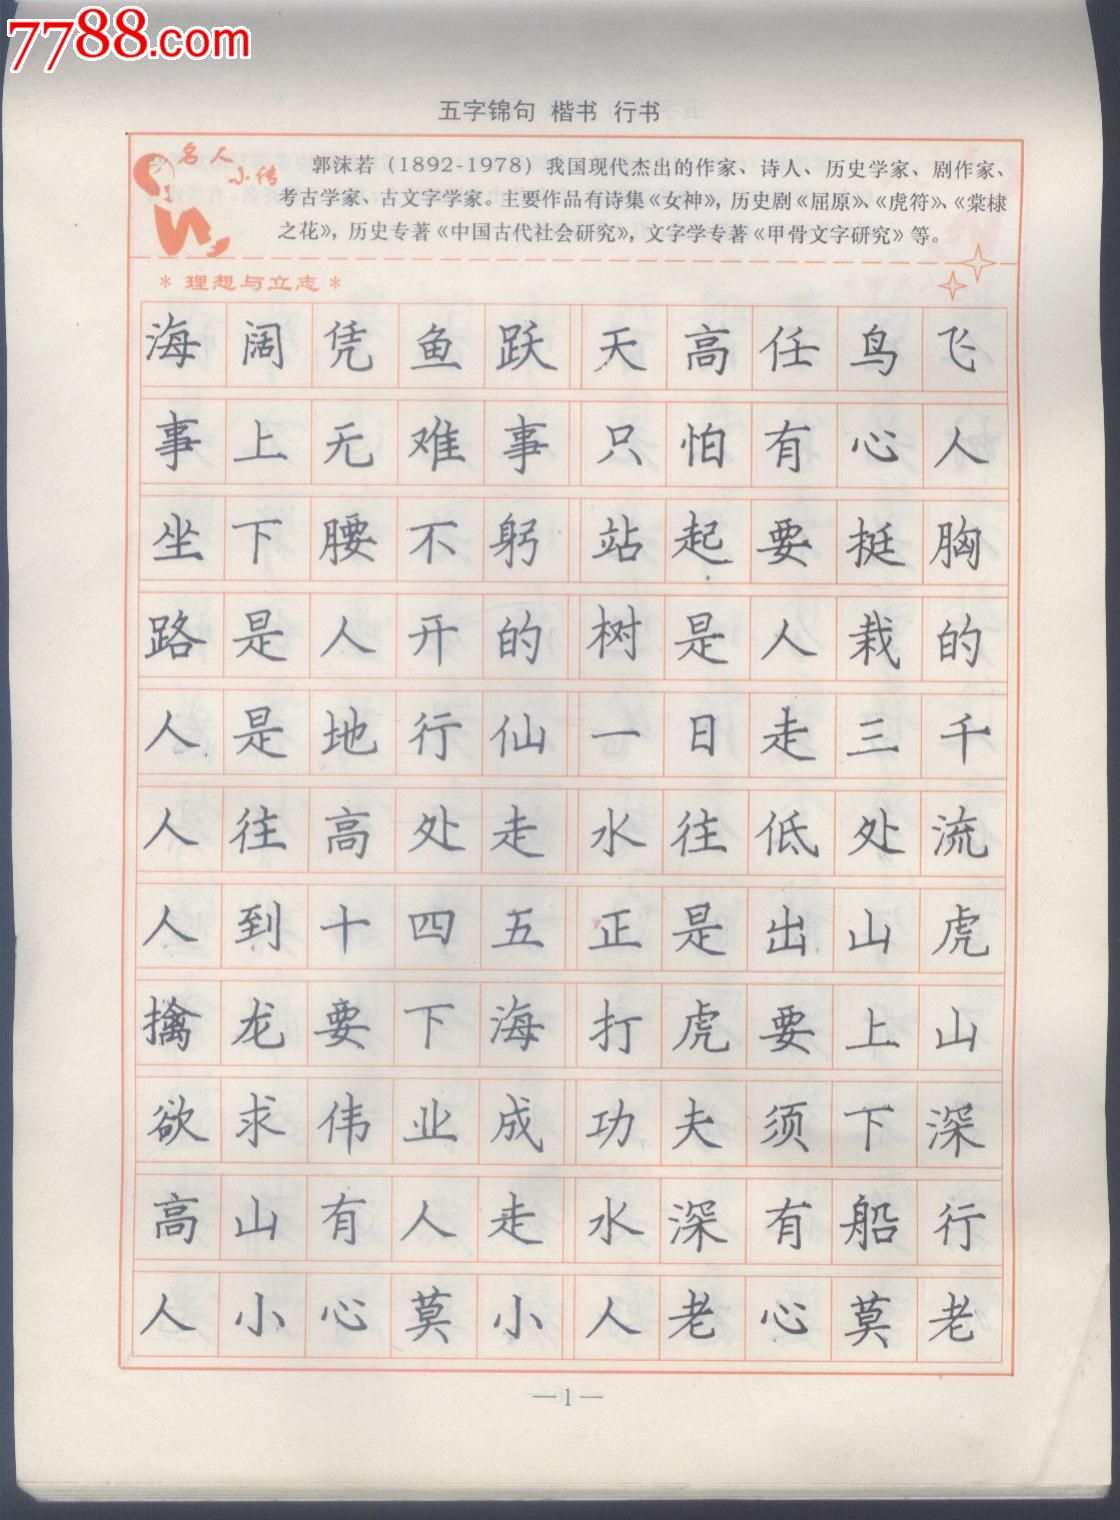 7788.com
五字锦句 楷书 行书
名人小传
郭沫若(1892-1978)我国现代杰出的作家、诗人、历史学家、剧作家、
考古学家、古文字学家。主要作品有诗集《女神》,历史剧《屈原》、《虎符》、《棠棣
之花》,历史专著《中国古代社会研究》,文字学专著《甲骨文字研究》等。
*理想与立志*
海阔凭鱼跃 天高任鸟飞
事上无难事 只怕有心人
坐下腰不躬 站起要挺胸
路是人开的 树是人栽的
人是地行仙 一日走三千
人往高处走 水往低处流
人到十四五 正是出山虎
擒龙要下海 打虎要上山
欲求伟业成 功夫须下深
高山有人走 水深有船行
人小心莫小 人老心莫老
—1—